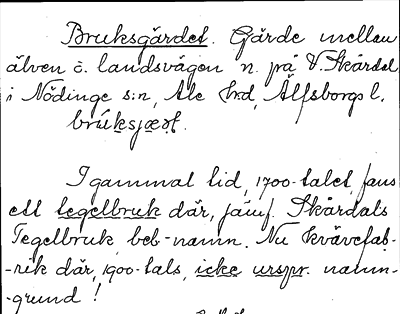 Bruksgärdet. Gärde mellan
älven o. landsvägen n. på V. Skårdal
i Nödinge s:n, Ale hrd, Älfsborgs l.
I gammal tid, 1700-talet, fans
ett tegelbruk där, jämf. Skårdals
Tegelbruk, beb-namn. Nu kvävefab-
-rik där, 1900-tals, icke urspr. namn-
-grund!